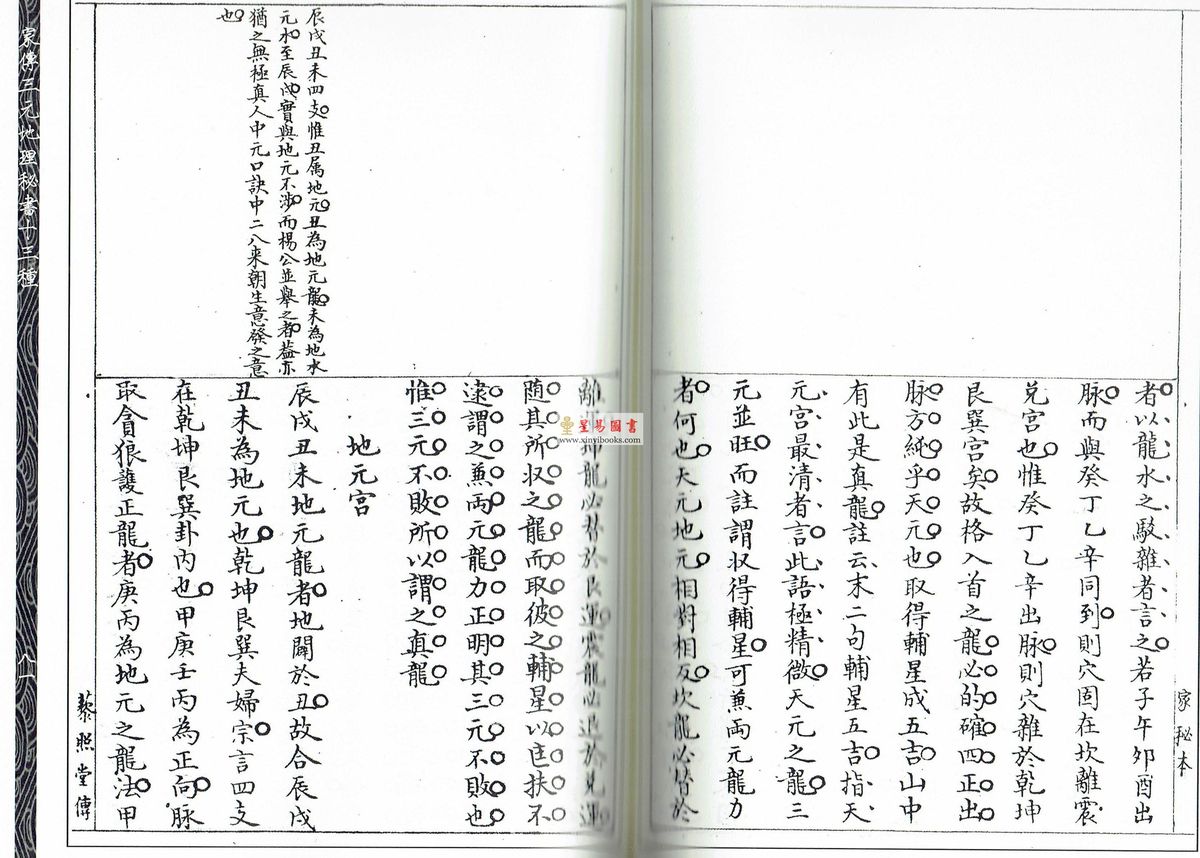 家秘本
者以龍水之駁雜者言之若子午卯酉出
脉而與癸丁乙辛同到則穴固在坎離震
兌宮也惟癸丁乙辛出脉則穴雜於乾坤
艮巽宮矣故格入首之龍必的確四正出
脉方純乎天元也取得輔星成五吉山中
有此是真龍註云末二句輔星五吉指天
元宮最清者言此語極精微天元之龍三
元並旺而註謂収得輔星可兼両元龍力
者何也天元地元相對相反坎龍必替於
離運坤龍必替於艮運震龍必退於兌運
随其所収之龍而取彼之輔星以匡扶不
逮謂之兼両元龍力正明其三元不敗也
惟三元不敗所以謂之真龍
地元宮
辰戌丑未地元龍者地闢於丑故合辰戌
丑未為地元也乾坤艮巽夫婦宗言四支
在乾坤艮巽卦內也甲庚壬丙為正向脉
取貪狼護正龍者庚丙為地元之龍法甲
辰戌丑未四支惟丑属地元丑為地元龍未為地水
元水至辰戌實與地元不涉而楊公並舉之者葢亦
猶之無極真人中元口訣中二八来朝生意發之意
也
藜照堂傳
家傳三元地理秘書十三種
星易圖書
www.xinyibooks.com